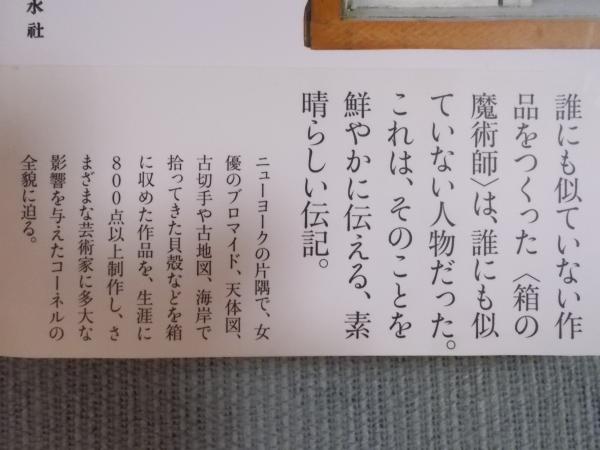 水社
誰にも似ていない作
品をつくった〈箱の
魔術師〉は、誰にも似
ていない人物だった。
これは、そのことを
鮮やかに伝える、素
晴らしい伝記。
ニューヨークの片隅で、女
優のブロマイド、天体図、
古切手や古地図、海岸で
拾ってきた貝殻などを箱
に収めた作品を、生涯に
800点以上制作し、さ
まざまな芸術家に多大な
影響を与えたコーネルの
全貌に迫る。